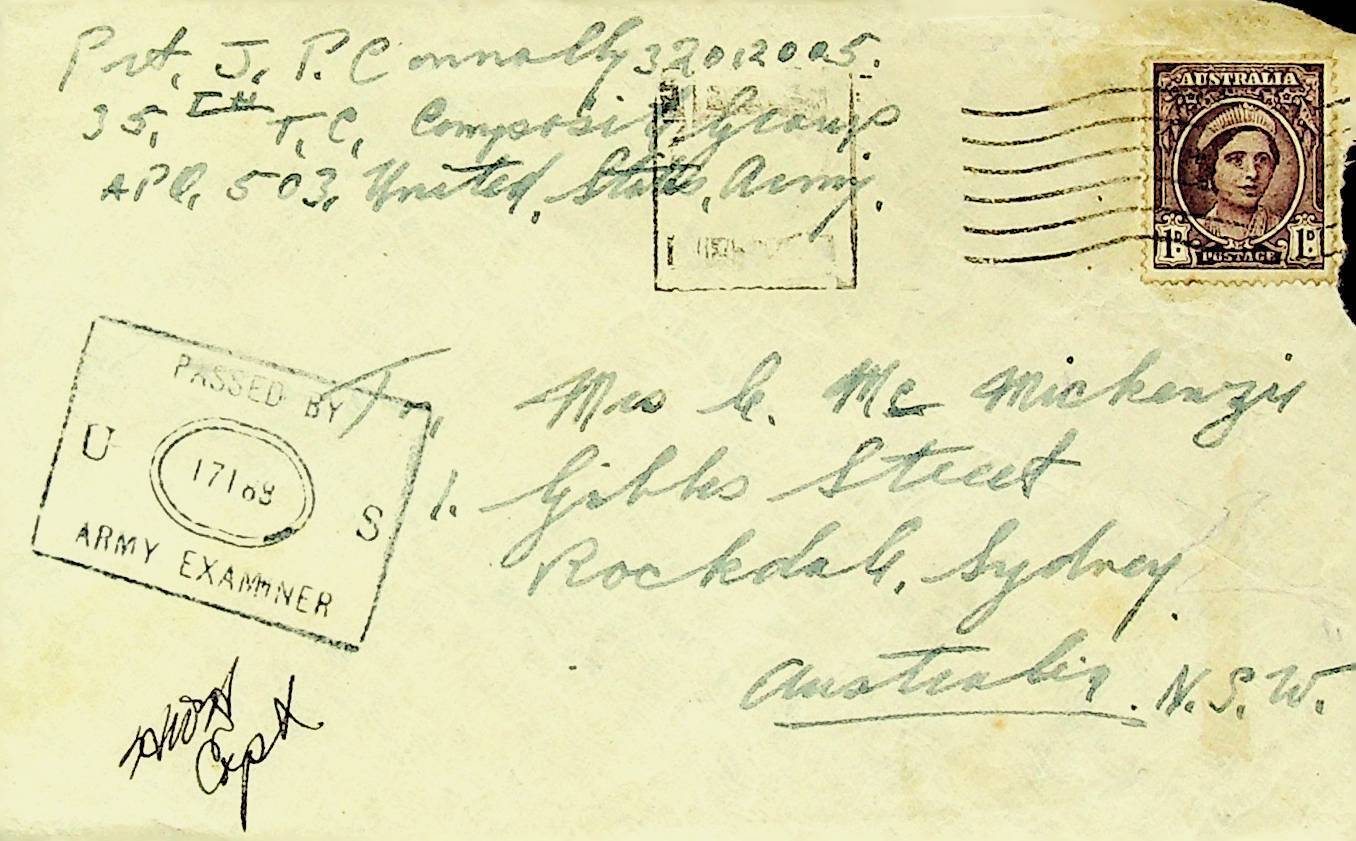 Pvt. J. P. Connally 32012005.
35, TH T.C. Composit Group
APO. 503, United, States, Army.
AUSTRALIA
1D. POSTAGE 1D.
PASSED BY
U 17169 S
ARMY EXAMINER
To,
Mrs C. Mc Mickenzie
1. Gibbs Street
Rockdale, Sydney.
Australia. N.S.W.
Capt